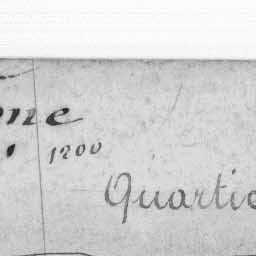 one
1200
Quartie